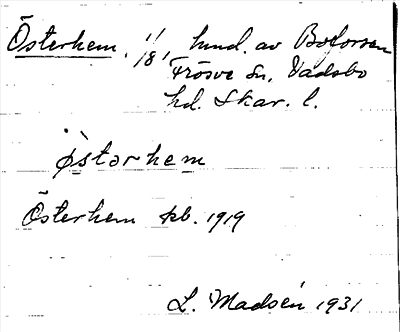 Österhem. 1/8, hmd. av Boforsen
Frösve sn, Vadsbo
hd. Skar. l.
østərhem
Österhem kb. 1919
L. Madsén 1931